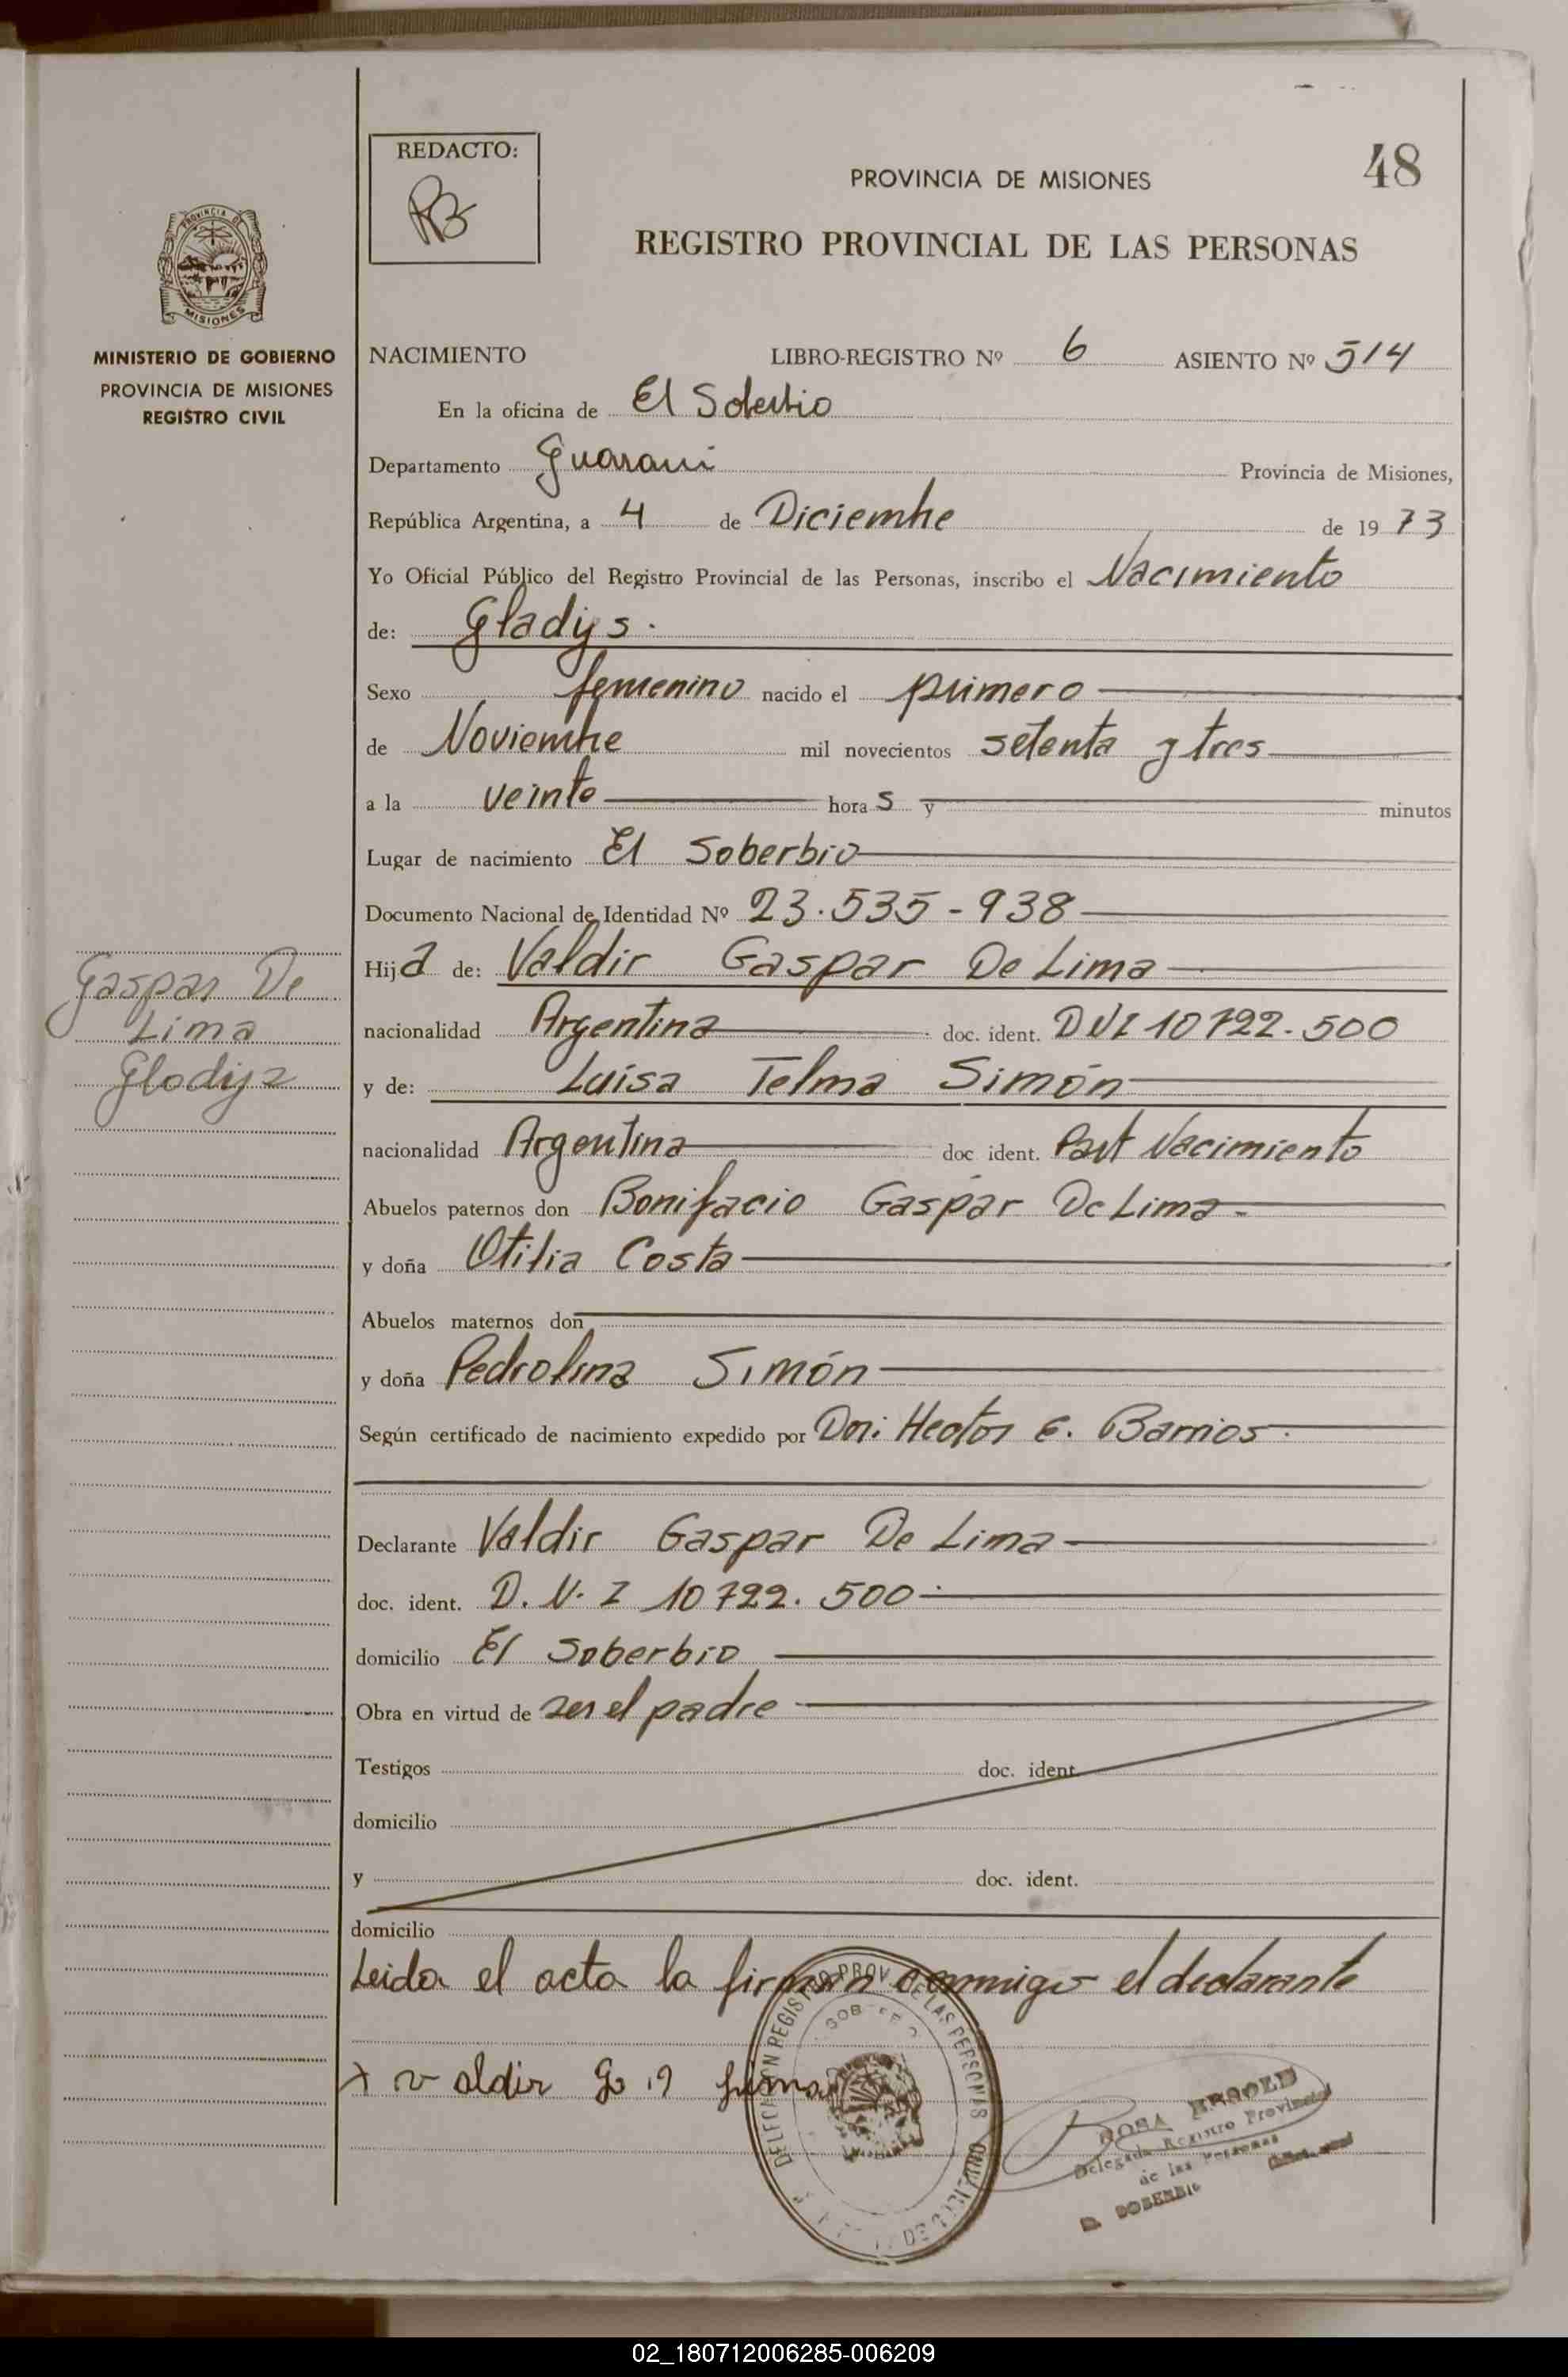 REDACTO:
48
PROVINCIA DE MISIONES
REGISTRO PROVINCIAL DE LAS PERSONAS
PROVINCIA DE
MISIONES
MINISTERIO DE GOBIERNO
PROVINCIA DE MISIONES
REGISTRO CIVIL
NACIMIENTO LIBRO-REGISTRO Nº 6 ASIENTO Nº 514
En la oficina de El Soberbio
Departamento Guarani Provincia de Misiones,
República Argentina, a 4 de Diciembre de 1973
Yo Oficial Público del Registro Provincial de las Personas, inscribo el Nacimiento
de: Gladys.
Sexo femenino nacido el primero
de Noviembre mil novecientos setenta y tres
a la veinte horas y minutos
Lugar de nacimiento El Soberbio
Documento Nacional de Identidad Nº 23.535-938
Hija de: Valdir Gaspar De Lima
nacionalidad Argentina doc. ident. DNI 10722.500
y de: Luisa Telma Simón
nacionalidad Argentina doc ident. Part Nacimiento
Abuelos paternos don Bonifacio Gaspar De Lima
y doña Otilia Costa
Abuelos maternos don
y doña Pedrolina Simón
Según certificado de nacimiento expedido por Dr: Hector E. Barrios
Declarante Valdir Gaspar De Lima
doc. ident. D.N.I 10722.500
domicilio El Soberbio
Obra en virtud de ser el padre
Testigos doc. ident.
domicilio
y doc. ident.
domicilio
Leida el acta la firman conmigo el declarante
Gaspar De
Lima
Gladys
valdir lima
DELEGACION REGISTRO PROV. DE LAS PERSONAS
ROSA
Delegada Registro Provincial
de las Personas
SOBERBIO
02_180712006285-006209